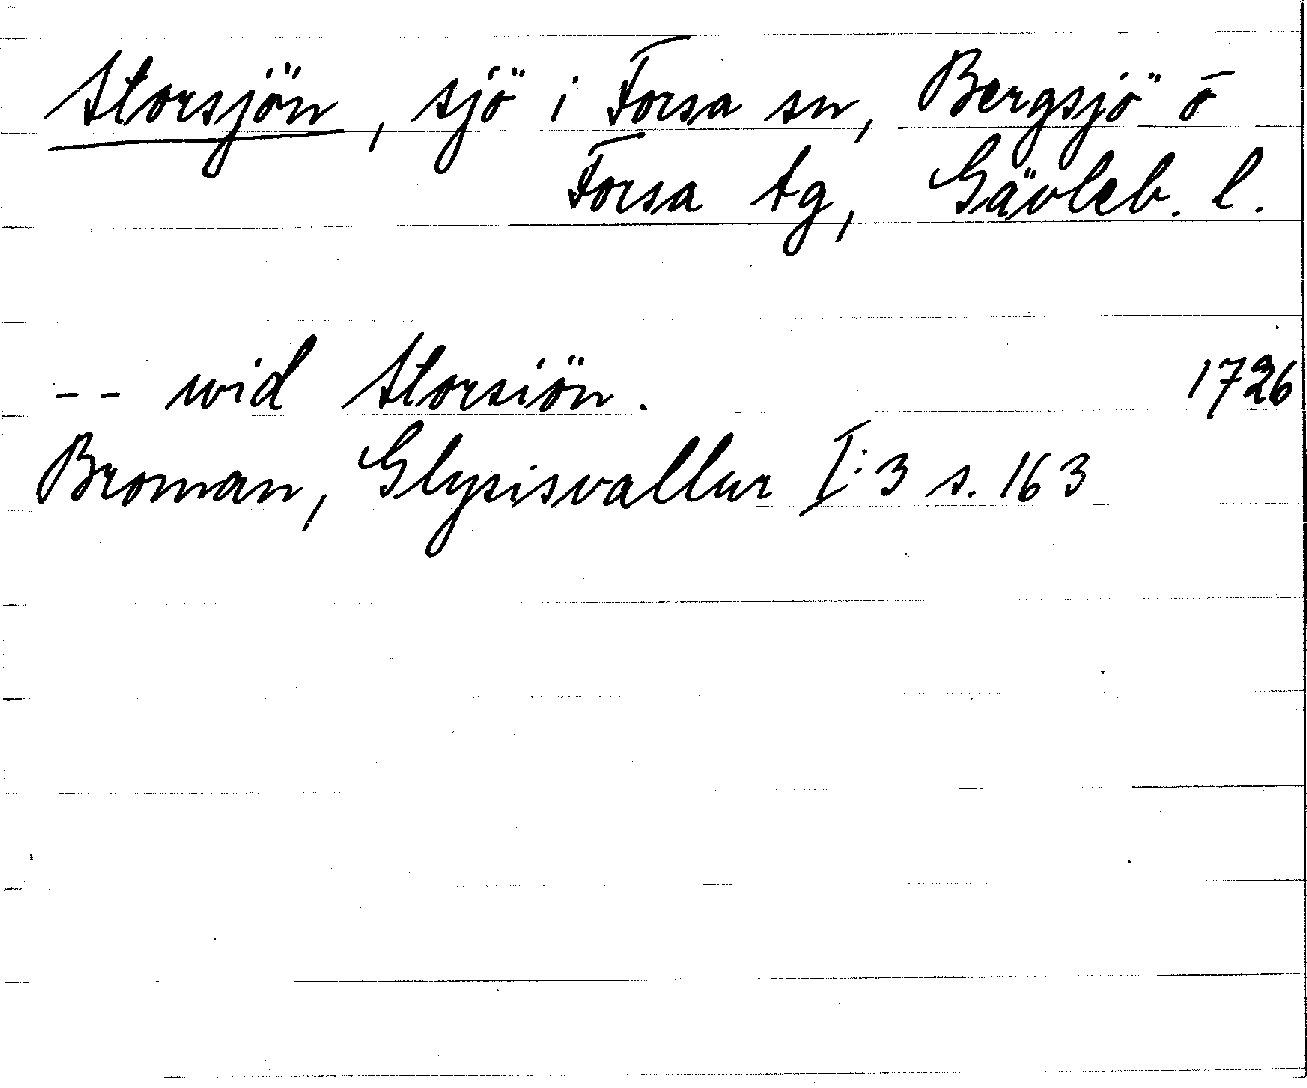 Storsjön, sjö i Forsa sn, Bergsjö o
Forsa tg, Gävleb. l.
-- wid Storsiön. 1726
Broman, Glysisvallur I:3 s. 163